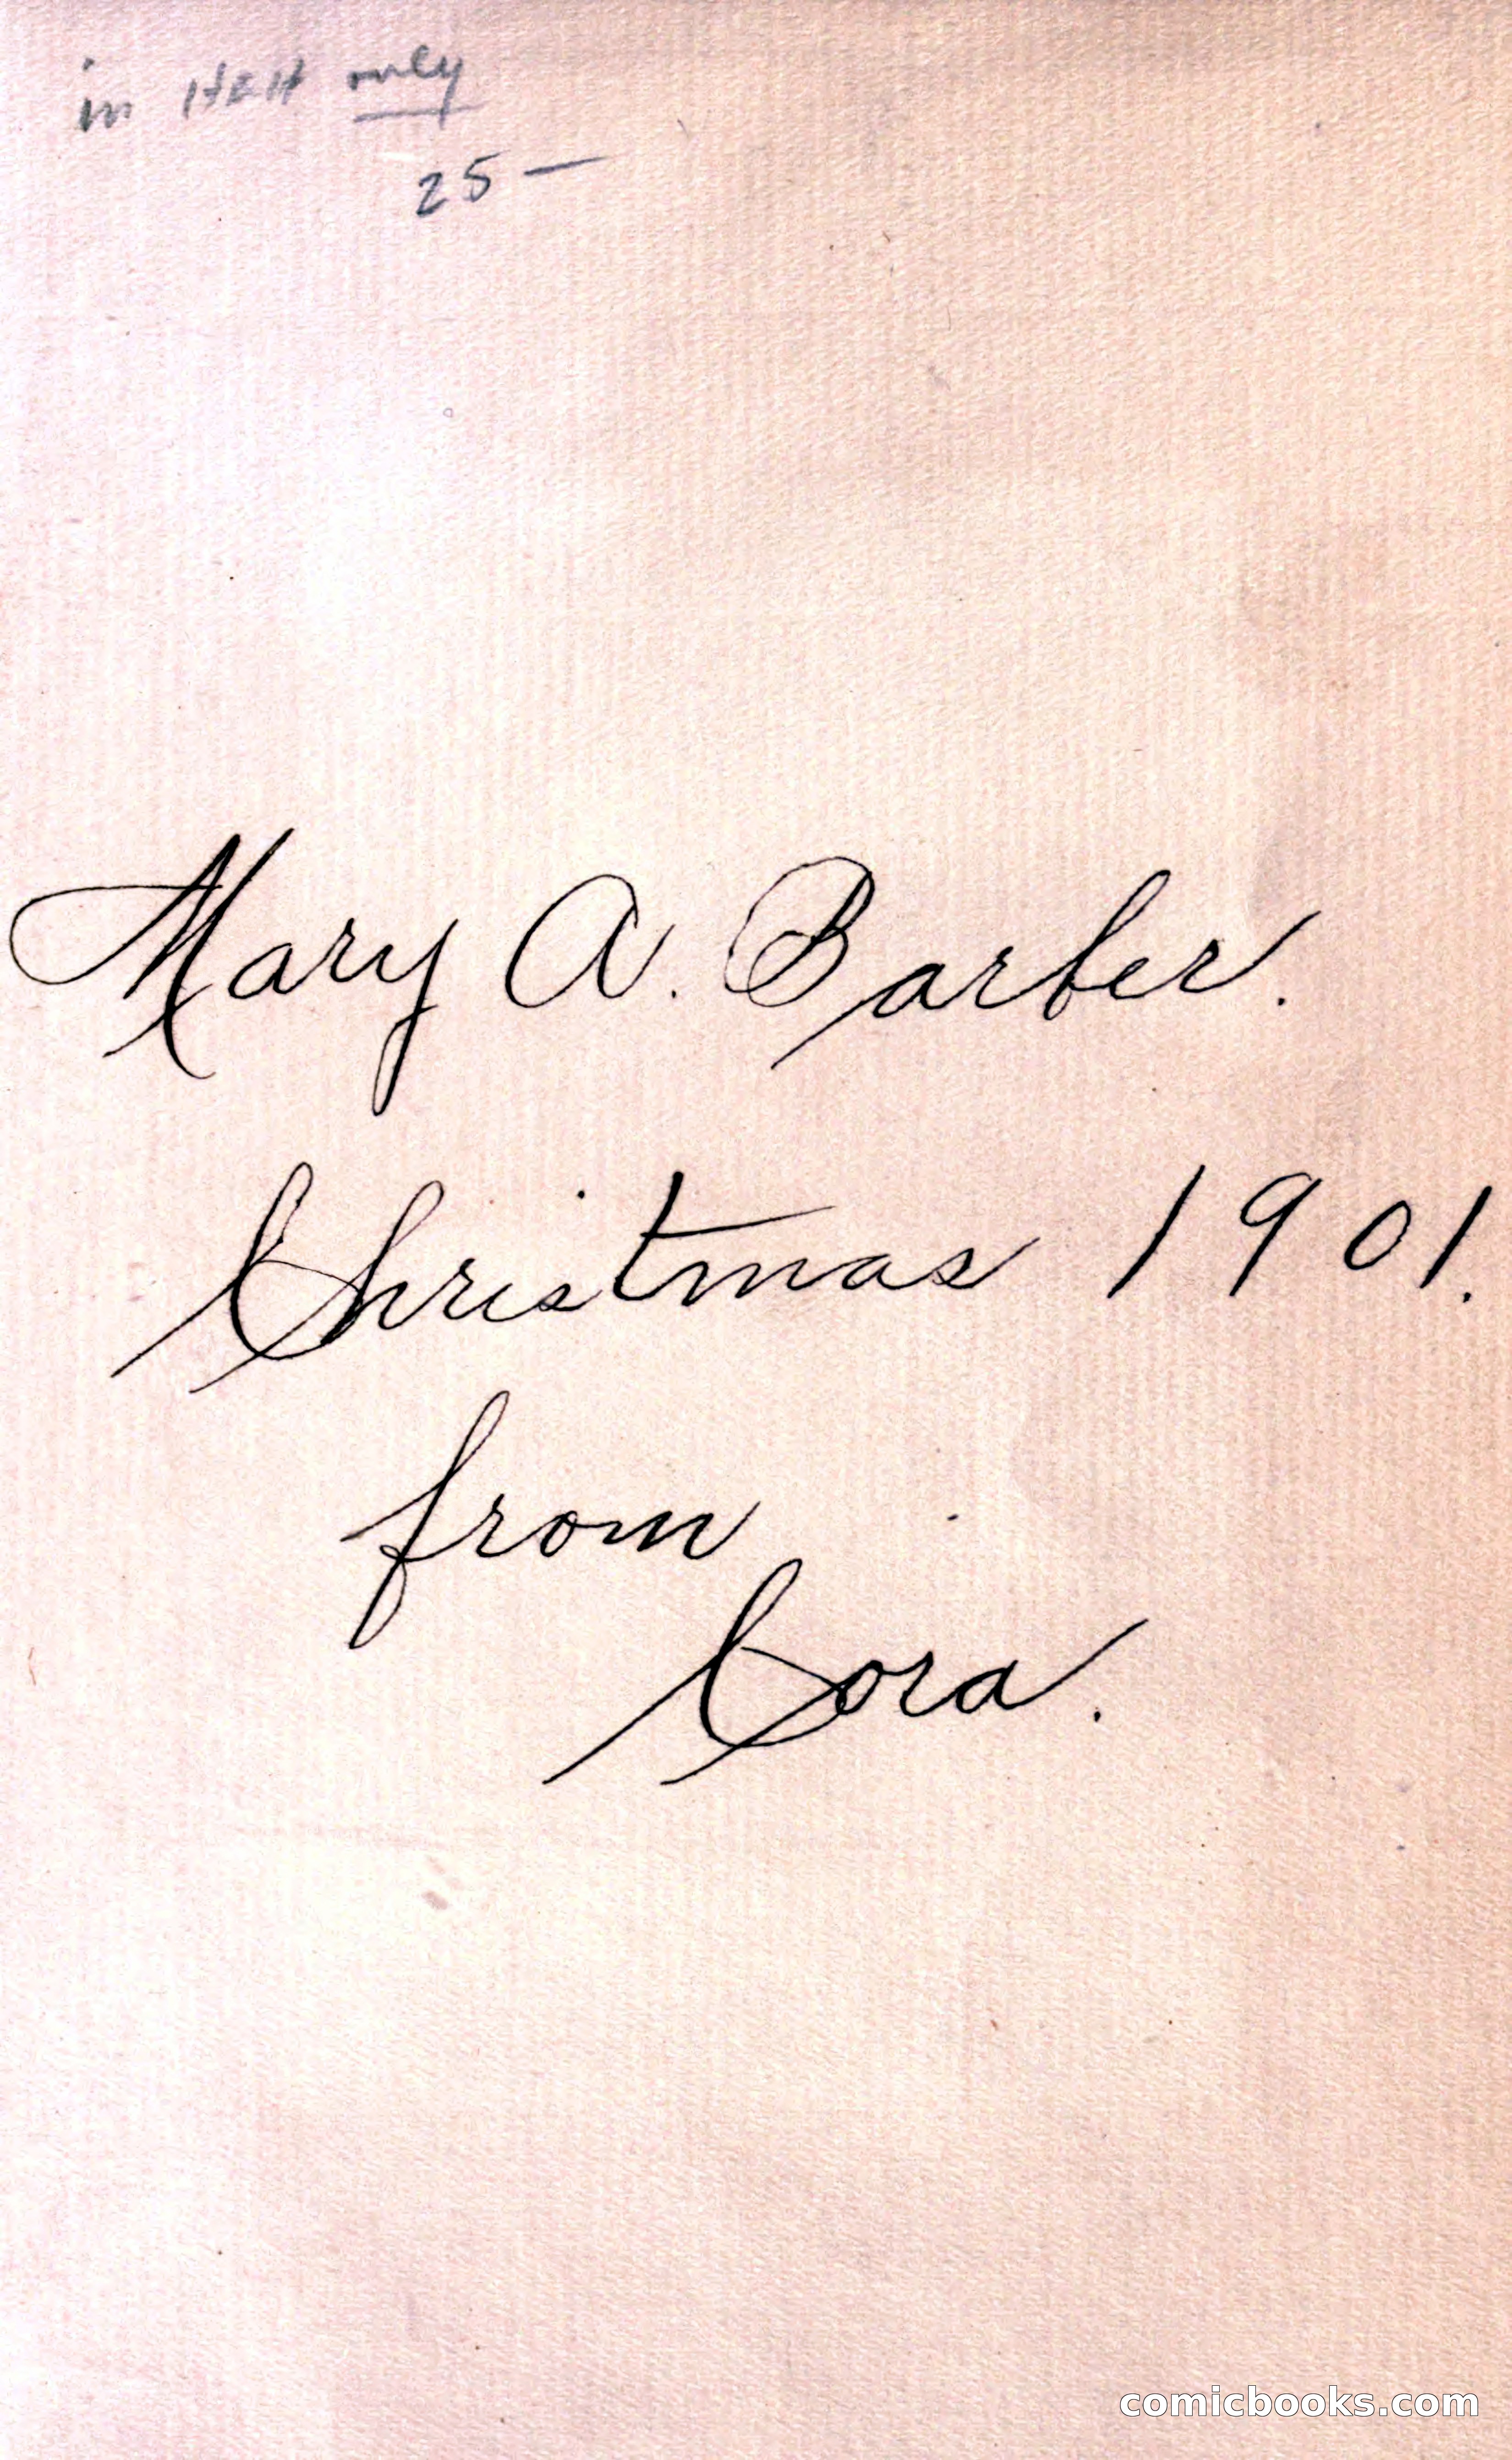 in HEH only
25 —
Mary A. Barber.
Christmas 1901.
from
Cora.
comicbooks.com